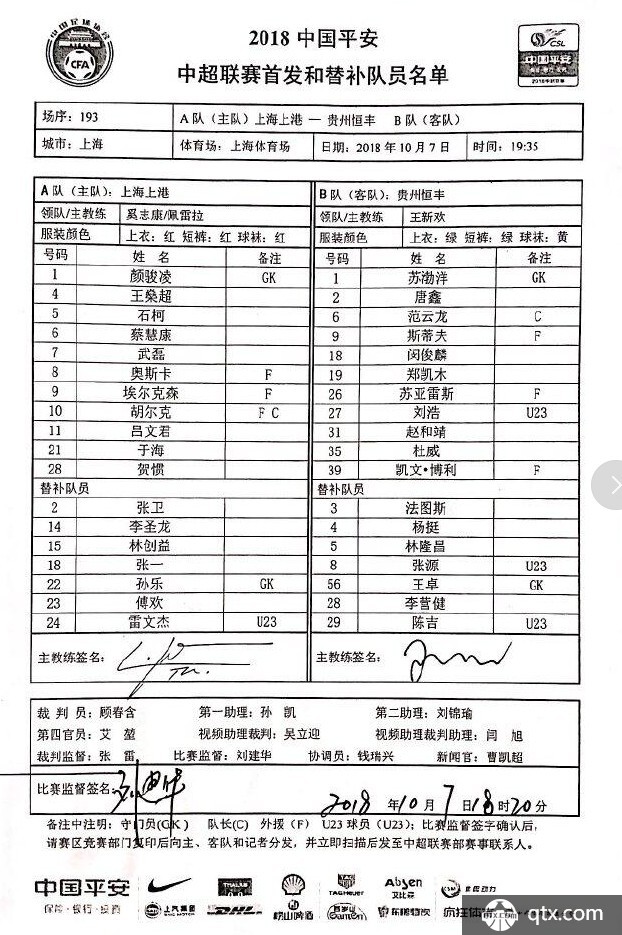 中国足球协会
CFA
2018 中国平安
中超联赛首发和替补队员名单
CSL
中国平安
2018中超联赛
场序：193 A队（主队）上海上港 — 贵州恒丰 B队（客队）
城市：上海 体育场：上海体育场 日期：2018年10月7日 时间：19:35
A队（主队）：上海上港 B队（客队）：贵州恒丰
领队/主教练 奚志康/佩雷拉 领队/主教练 王新欢
服装颜色 上衣：红 短裤：红 球袜：红 服装颜色 上衣：绿 短裤：绿 球袜：黄
号码 姓 名 备注 号码 姓 名 备注
1 颜骏凌 GK 1 苏渤洋 GK
4 王燊超 2 唐鑫
5 石柯 6 范云龙 C
6 蔡慧康 9 斯蒂夫 F
7 武磊 18 闵俊麟
8 奥斯卡 F 19 郑凯木
9 埃尔克森 F 26 苏亚雷斯 F
10 胡尔克 F C 27 刘浩 U23
11 吕文君 31 赵和靖
21 于海 35 杜威
28 贺惯 39 凯文•博利 F
替补队员 替补队员
2 张卫 3 法图斯
14 李圣龙 4 杨挺
15 林创益 5 林隆昌
18 张一 8 张源 U23
22 孙乐 GK 56 王卓 GK
23 傅欢 28 李营健
24 雷文杰 U23 29 陈吉 U23
主教练签名： 主教练签名：
裁判员：顾春含 第一助理：孙 凯 第二助理：刘锦瑜
第四官员：艾 堃 视频助理裁判：吴立迎 视频助理裁判助理：闫 旭
裁判监督：张 雷 比赛监督：刘建华 协调员：钱瑞兴 新闻官：曹凯超
比赛监督签名： 刘建华 2018 年10月 7日18时20分
备注中注明：守门员(GK) 队长(C) 外援（F） U23球员（U23）；比赛监督签字确认后，
请赛区竞赛部门复印后向主、客队和记者分发，并立即扫描后发至中超联赛部赛事联系人。
中国平安
保险·银行·投资
上汽集团
DHL
崂山啤酒
TAGHeuer
Absen
艾比森
东鹏特饮
疯狂体育
qtx.com